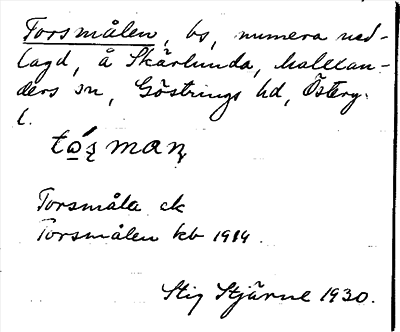 Torsmålen, bs, numera ned-
lagd, å Skärlunda, Hallan-
ders sn, Göstrings hd, Österg.
l.
tórsmaɳ
Torsmåla ek
Torsmålen kb 1914.
Stig Stjärne 1930.